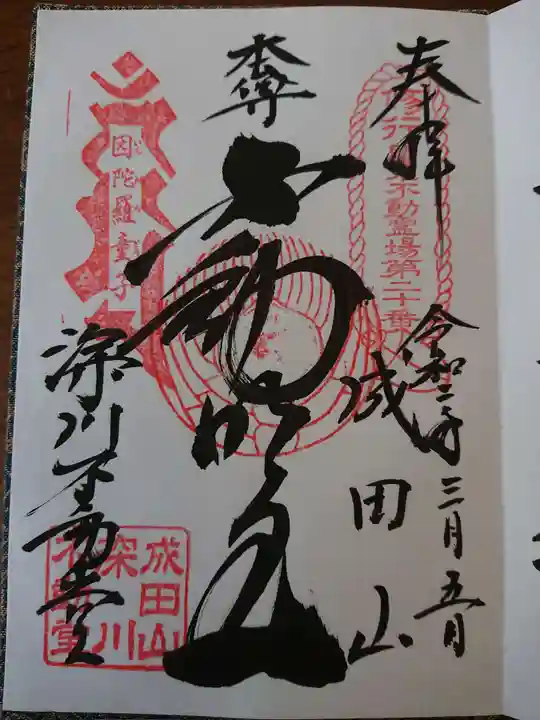 奉拝
修行 不動霊場第二十番
令和二年三月五日
成田山
本尊
不動明王
因陀羅童子
深川不動堂
成田山
深川
不動堂